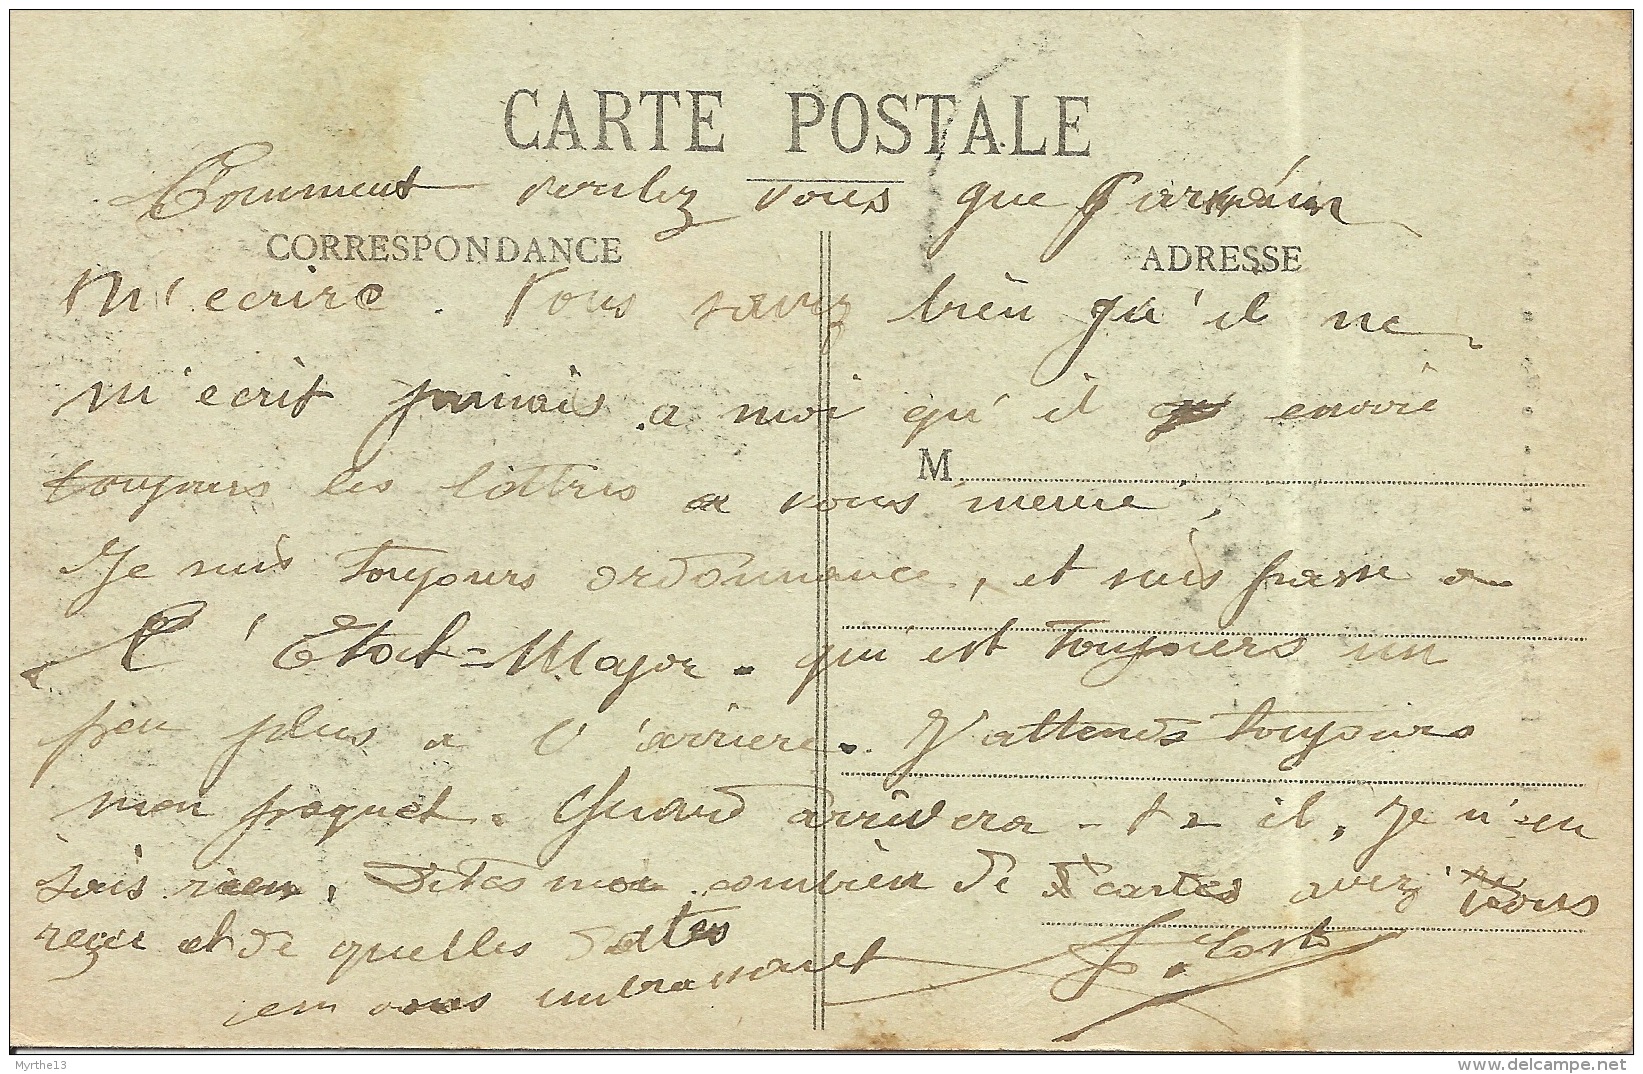 CARTE POSTALE
Comment voulez vous que Parrain
CORRESPONDANCE
ADRESSE
m'ecrire. Vous savez bien qu'il ne
m'ecrit jamais a moi qu'il envoie
M
toujours les lettres a vous meme,
Je suis toujours ordonnance, et suis passe a
l'Etat-Major. qui est toujours un
peu plus a l'arriere. J'attends toujours
mon paquet. Quand arrivera-t-il, Je n'en
sais rien, Dites moi combien de cartes avez vous
reçu et de quelles dates
en vous embrassant
J. Cost
Myrthe13
www.delcampe.net